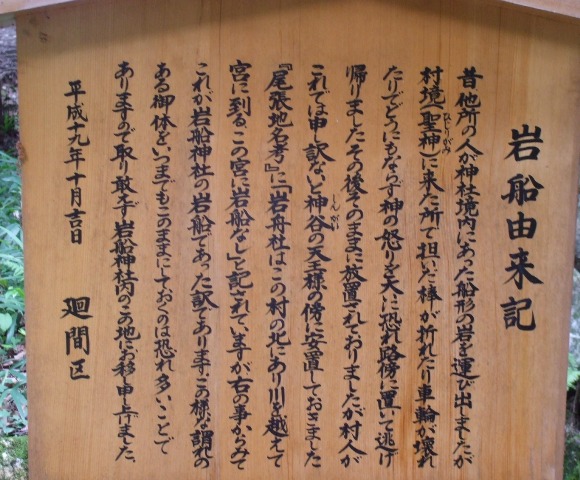 岩船由来記
昔他所の人が神社境内にあった船形の岩を運び出ましたが
村境(聖神)に来た所で担いだ棒が折れたり車輪が壊れ
たりでどうにもならず神の怒りを大に恐れ路傍に置いて逃げ
帰りましたその後そのままに放置されておりましたが村人が
これでは申し訳ないと神谷の天王様の傍に安置しておきました
『尾張地名考』に「岩舟社はこの村の北にあり川を越えて
宮に到るこの宮に岩船なし」と記されていますが右の事からみて
これが岩船神社の岩船であった訳であります。この様な謂れの
ある御体をいつまでもこのままにしておくのは恐れ多いことで
ありますので取り敢えず岩船神社内のこの地にお移し申し上げました、
平成十九年十月吉日
廻間区